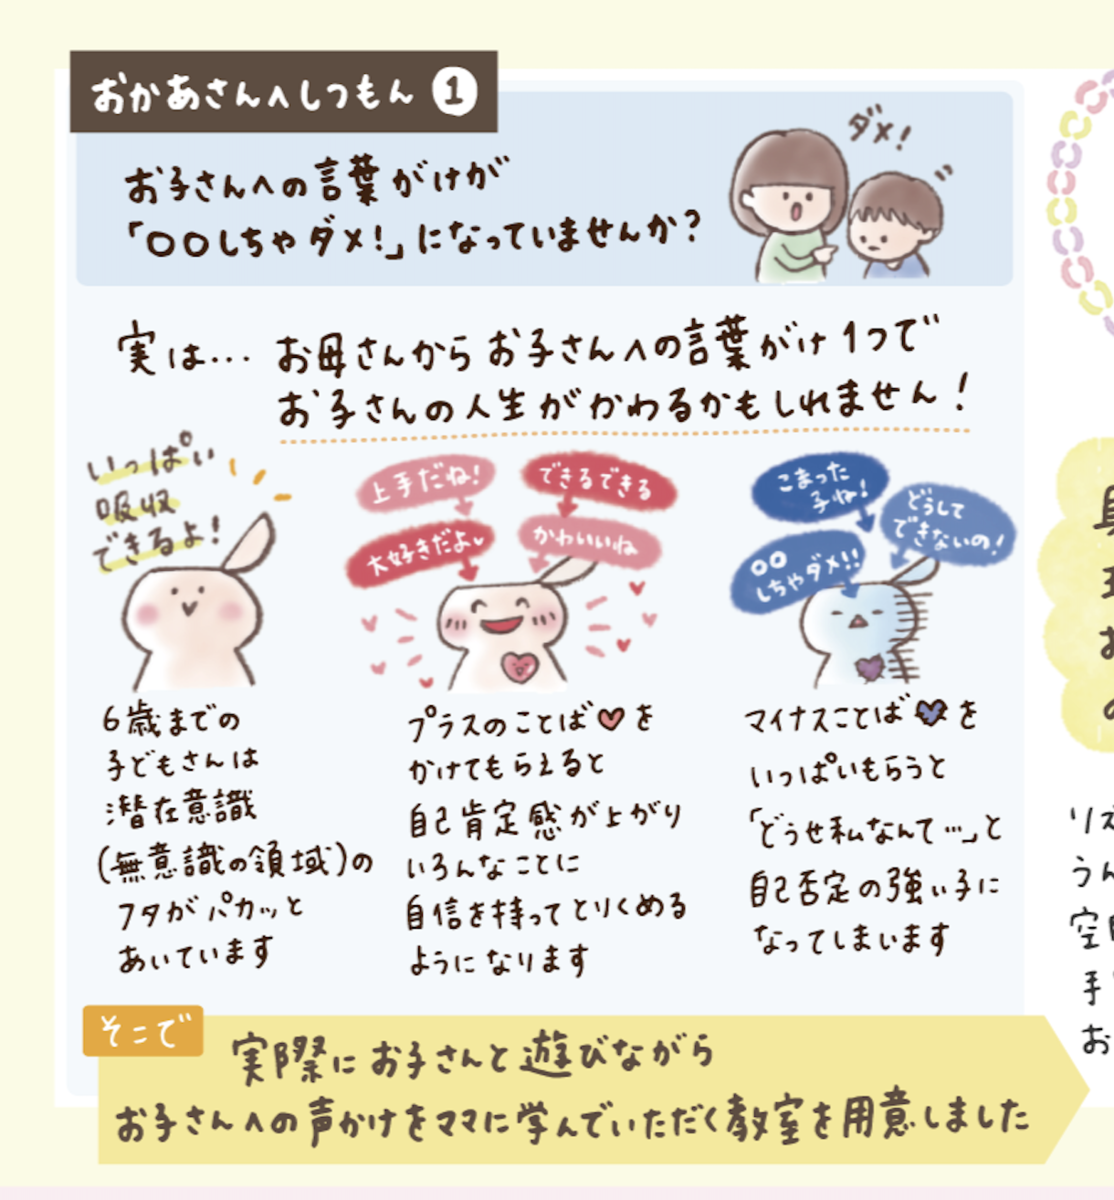 おかあさんへしつもん 1
ダメ!
お子さんへの言葉がけが
「〇〇しちゃダメ!」になっていませんか?
実は… お母さんからお子さんへの言葉がけ1つで
お子さんの人生がかわるかもしれません!
いっぱい
吸収
できるよ!
上手だね!
できるできる
大好きだよ♥
かわいいね
こまった
子ね!
どうして
できないの!
〇〇
しちゃダメ!!
6歳までの
子どもさんは
潜在意識
(無意識の領域)の
フタがパカッと
あいています
プラスのことば♥を
かけてもらえると
自己肯定感が上がり
いろんなことに
自信を持ってとりくめる
ようになります
マイナスことば♥を
いっぱいもらうと
「どうせ私なんて…」と
自己否定の強い子に
なってしまいます
そこで
実際にお子さんと遊びながら
お子さんへの声かけをママに学んでいただく教室を用意しました
お
の
うん
手
お